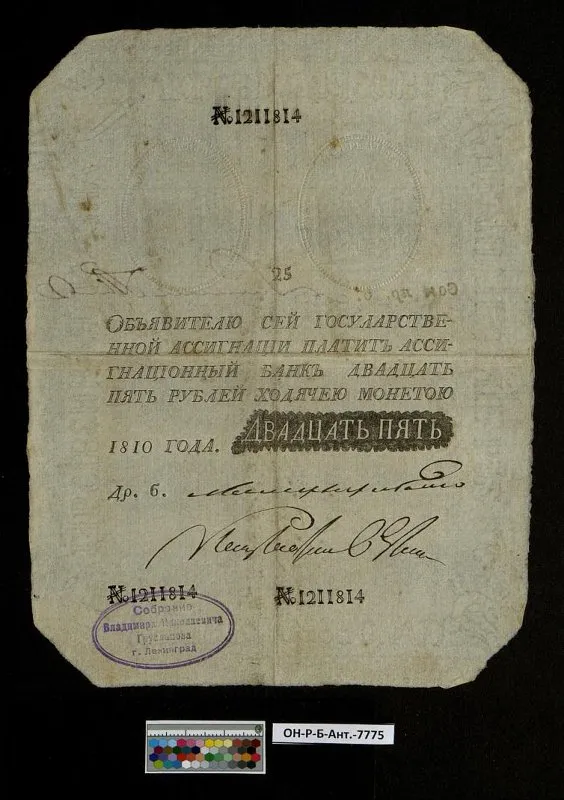 №1211814
25
Объявителю сей государстве-
нной ассигнации платитъ асси-
гнаціонный банкъ двадцать
пять рублей ходячею монетою
1810 года. ДВАДЦАТЬ ПЯТЬ
Др. б.
№1211814 №1211814
Собрание
Владимира Николаевича
г. Ленинград
ОН-Р-Б-Ант.-7775